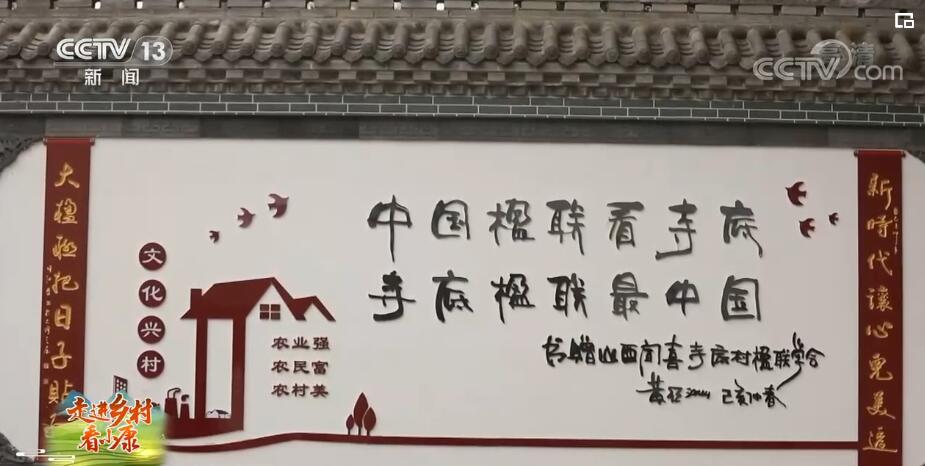 CCTV 13
新闻
高清
CCTV.com
新時代讓心更美遥
大楹聯把日子貼
中国楹联看寺底
寺底楹联最中国
书赠山西闻喜寺底村楹联学会
己亥仲春
文化兴村
农业强
农民富
农村美
走进乡村
看小康